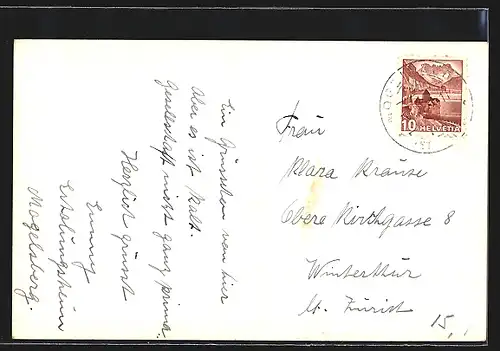 Ein Grüsschen von hier
Aber es ist kalt.
Gesellschaft nicht ganz prima.
Herzlich grüsst
Emmy
Erholungsheim
Mogelsberg.
Frau
Klara Krause
Obere Kirchgasse 8
Winterthur
Kt. Zürich
10 HELVETIA
15,